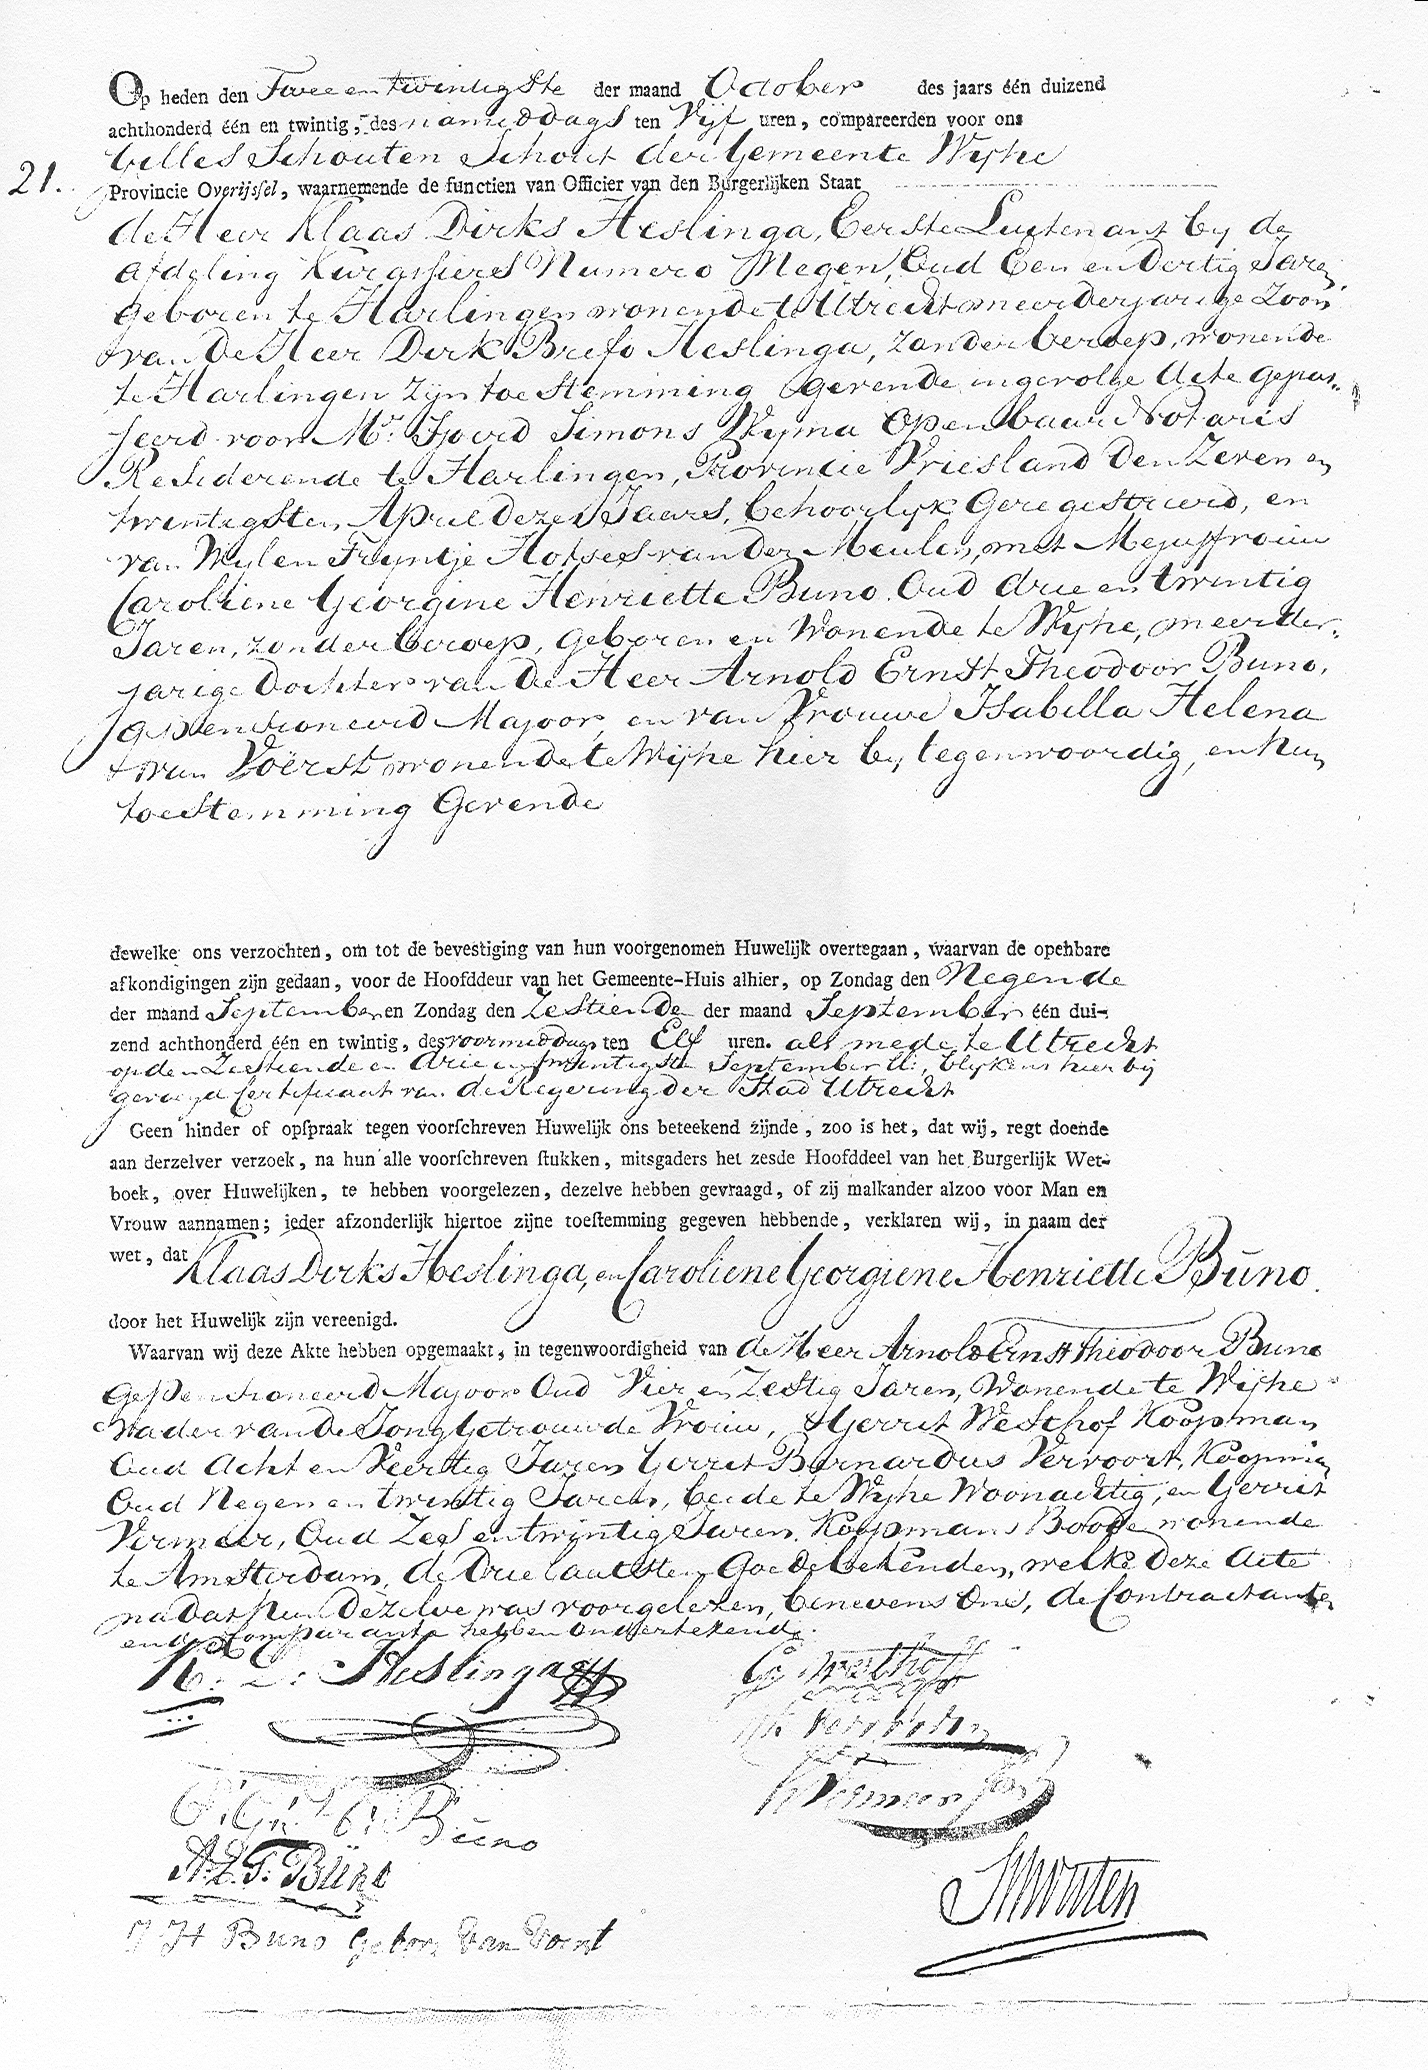 Op heden den Twee en twintigste der maand October des jaars één duizend
achthonderd één en twintig, des namiddags ten Vijf uren, compareerden voor ons
Gilles Schouten Schout der Gemeente Wijhe
21.
Provincie Overijsſel, waarnemende de functien van Officier van den Burgerlijken Staat
de Heer Klaas Dirks Heslinga, Eerste Luitenant by de
Afdeling Kurassiers Numero Negen, Oud Een en Dertig Jaren
geboren te Harlingen wonende te Utrecht meerderjarige Zoon
van de Heer Dirk Heslinga, zonder beroep, wonende
te Harlingen Zijn toestemming gevende ingevolge Acte gepas-
seerd voor Mr. Sjoerd Simons Wijma Openbaar Notaris
Residerende te Harlingen, Provincie Vriesland den Zeven en
twintigsten April dezes Jaars, behoorlyk Geregistreerd, en
van Wylen Tryntje Hotses van der Meulen, met Mejuffrouw
Caroliene Georgine Henriette Buno Oud drie en twintig
Jaren, zonder beroep, geboren en Wonende te Wijhe, meerder-
jarige Dochter van de Heer Arnold Ernst Theodoor Buno,
gepensioneerd Majoor, en van Vrouwe Isabella Helena
van Voërst wonende te Wijhe hier by tegenwoordig, en hun
toestemming Gevende
dewelke ons verzochten, om tot de bevestiging van hun voorgenomen Huwelijk overtegaan, waarvan de openbare
afkondigingen zijn gedaan, voor de Hoofddeur van het Gemeente-Huis alhier, op Zondag den Negende
der maand September en Zondag den Zestiende der maand September één dui-
zend achthonderd één en twintig, des voormiddags ten Elf uren. als mede te Utrecht
op den Zestiende en drie en twintigste September ll:, blykens hier bij
gevoegd Certificaat van de Regering der Stad Utrecht
Geen hinder of opſpraak tegen voorſchreven Huwelijk ons beteekend zijnde, zoo is het, dat wij, regt doende
aan derzelver verzoek, na hun alle voorſchreven ſtukken, mitsgaders het zesde Hoofddeel van het Burgerlijk Wet-
boek, over Huwelijken, te hebben voorgelezen, dezelve hebben gevraagd, of zij malkander alzoo voor Man en
Vrouw aannamen; ieder afzonderlijk hiertoe zijne toeſtemming gegeven hebbende, verklaren wij, in naam der
wet, dat Klaas Dirks Heslinga, en Caroliene Georgiene Henriette Buno
door het Huwelijk zijn vereenigd.
Waarvan wij deze Akte hebben opgemaakt, in tegenwoordigheid van de Heer Arnold Ernst Theodoor Buno
Gepensioneerd Majoor Oud Vier en Zestig Jaren, Wonende te Wijhe
Vader van de Jong getrouwde Vrouw, Gerrit Westhof Koopman
Oud Acht en Veertig Jaren Gerrit Bernardus Vervoort, Koopman
Oud Negen en twintig Jaren, beide te Wijhe Woonachtig, en Gerrit
Vermeer, Oud Zes en twintig Jaren Koopmans Boode wonende
te Amsterdam, de drie laatsten Goede bekenden, welke deze Acte
na dat hun dezelve was voorgelezen, benevens Ons, de Contractanten
en de Comparante hebben ondertekend.
K. D. Heslinga
G. Westhoff
Vermeer
Buno
A. E. T. Büno
Schouten
I H Buno Geboren van Voerst